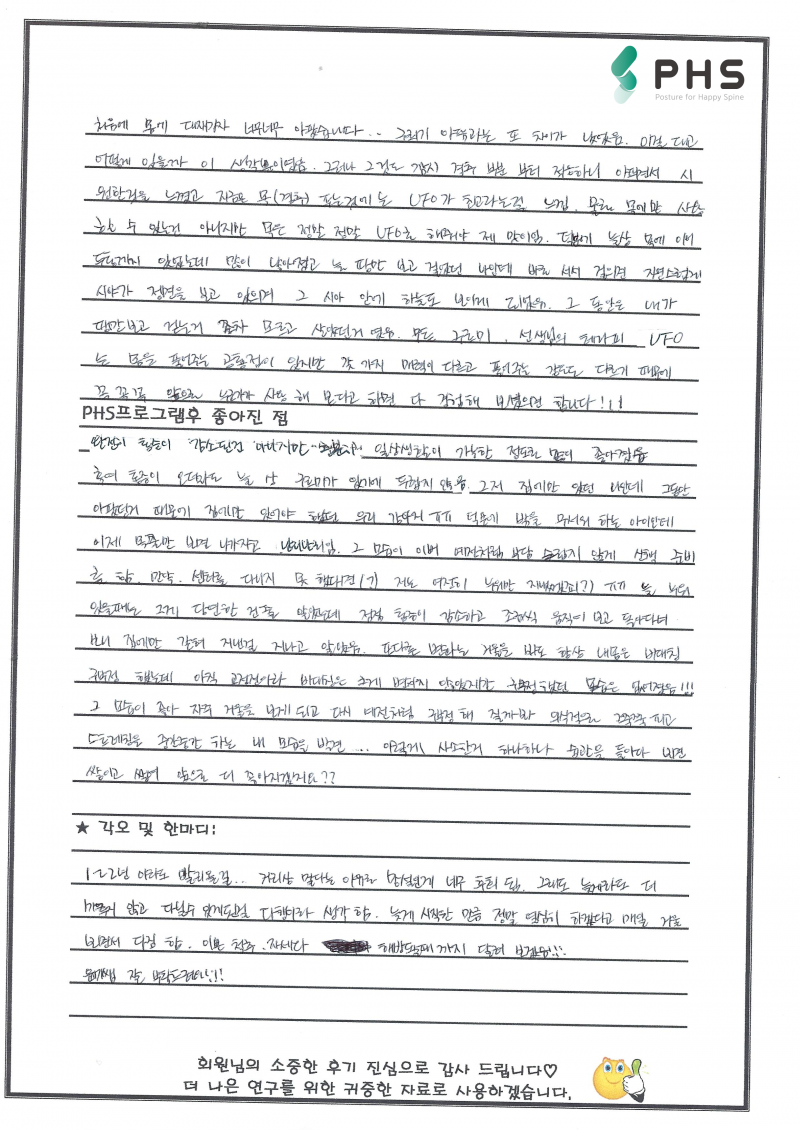 PHS
Posture for Happy Spine
처음에 몸에 대자마자 너무너무 아팠습니다.. 그러기 아픔과는 또 차이가 났었음. 이걸 대고
어떻게 있을까 이 생각뿐이었음. 그러나 그것도 잠시 경추 부분 부터 적응하니 아파면서 시
원한걸 느꼈고 지금은 목(경추) 푸는것에는 UFO가 최고라는걸 느낌. 물론 목에만 사용
할 수 있는건 아니지만 목은 정말 정말 UFO로 해줘야 제 맛이임. 덕분에 늘상 몸에 이어
두통까지 있었는데 많이 나아졌고 늘 땅만 보고 걸었던 나인데 바로 서서 걸으면 자연스럽게
시야가 정면을 보고 있으며 그 시야 안에 하늘도 보이게 되었음. 그 동안은 내가
땅만보고 걷는지 조차 모르고 살았던거 였음. 무튼 구르미, 선생님의 테라피 UFO
는 몸을 풀어주는 공통점이 있지만 각 가지 매력이 다르고 풀어주는 강도도 다르기 때문에
꼭 꼭꼭 앞으로 누군가가 사용 해 본다고 하면 다 경험해 보셨으면 합니다!!!
PHS프로그램후 좋아진 점
완전히 통증이 감소된건 아니지만 일상생활이 가능한 정도로 많이 좋아졌음
혹여 통증이 오더라도 늘 상 구르미가 있기에 두렵지 않음. 그저 집에만 있던 나인데 그동안
아팠던거 때문에 집에만 있어야 했던 우리 강아지 덕분에 밖을 무서워 하는 아이인데
이제 목줄만 보면 나가자고 난리난리임. 그 모습이 이번 예전처럼 부담 스럽지 않게 산책 준비
를 함. 만약. 센터를 다니지 못 했더라면(?) 저는 여전히 누워만 지냈겠죠(?) ㅠㅠ 늘 누워
있을때는 그게 당연한 건줄 알았는데 점점 통증이 감소하고 조금씩 움직여 보고 돌아다녀
보니 집에만 갇혀 지낸걸 지나고 알았음. 또다른 변화는 거울을 봐도 항상 내몸은 비대칭
구부정 했는데 아직 교정전이라 비대칭은 크게 변하지 않았지만 구부정했던 모습은 없어졌음!!!
그 모습이 좋아 자꾸 거울을 보게 되고 다시 예전처럼 구부정 해 질까봐 의식적으로 쭉쭉 피고
스트레칭을 중간중간 하는 내 모습을 발견 .... 이렇게 사소한거 하나하나 습관을 들이다 보면
쌓이고 쌓여 앞으로 더 좋아지겠지요??
★ 각오 및 한마디:
1~2년 이라도 빨리올걸... 거리상 멀다는 이유로 망설인게 너무 후회 됨. 그래도 늦게라도 더
미루지 않고 다닐수 있게되었 다행이라 생각 함. 늦게 시작한 만큼 정말 열심히 하겠다고 매일 거울
보면서 다짐 함. 이쁜 척추. 자세다 해방드릴때 까지 달려 보겠음!!!
잘 부탁드려요!!!
회원님의 소중한 후기 진심으로 감사 드립니다♡
더 나은 연구를 위한 귀중한 자료로 사용하겠습니다.